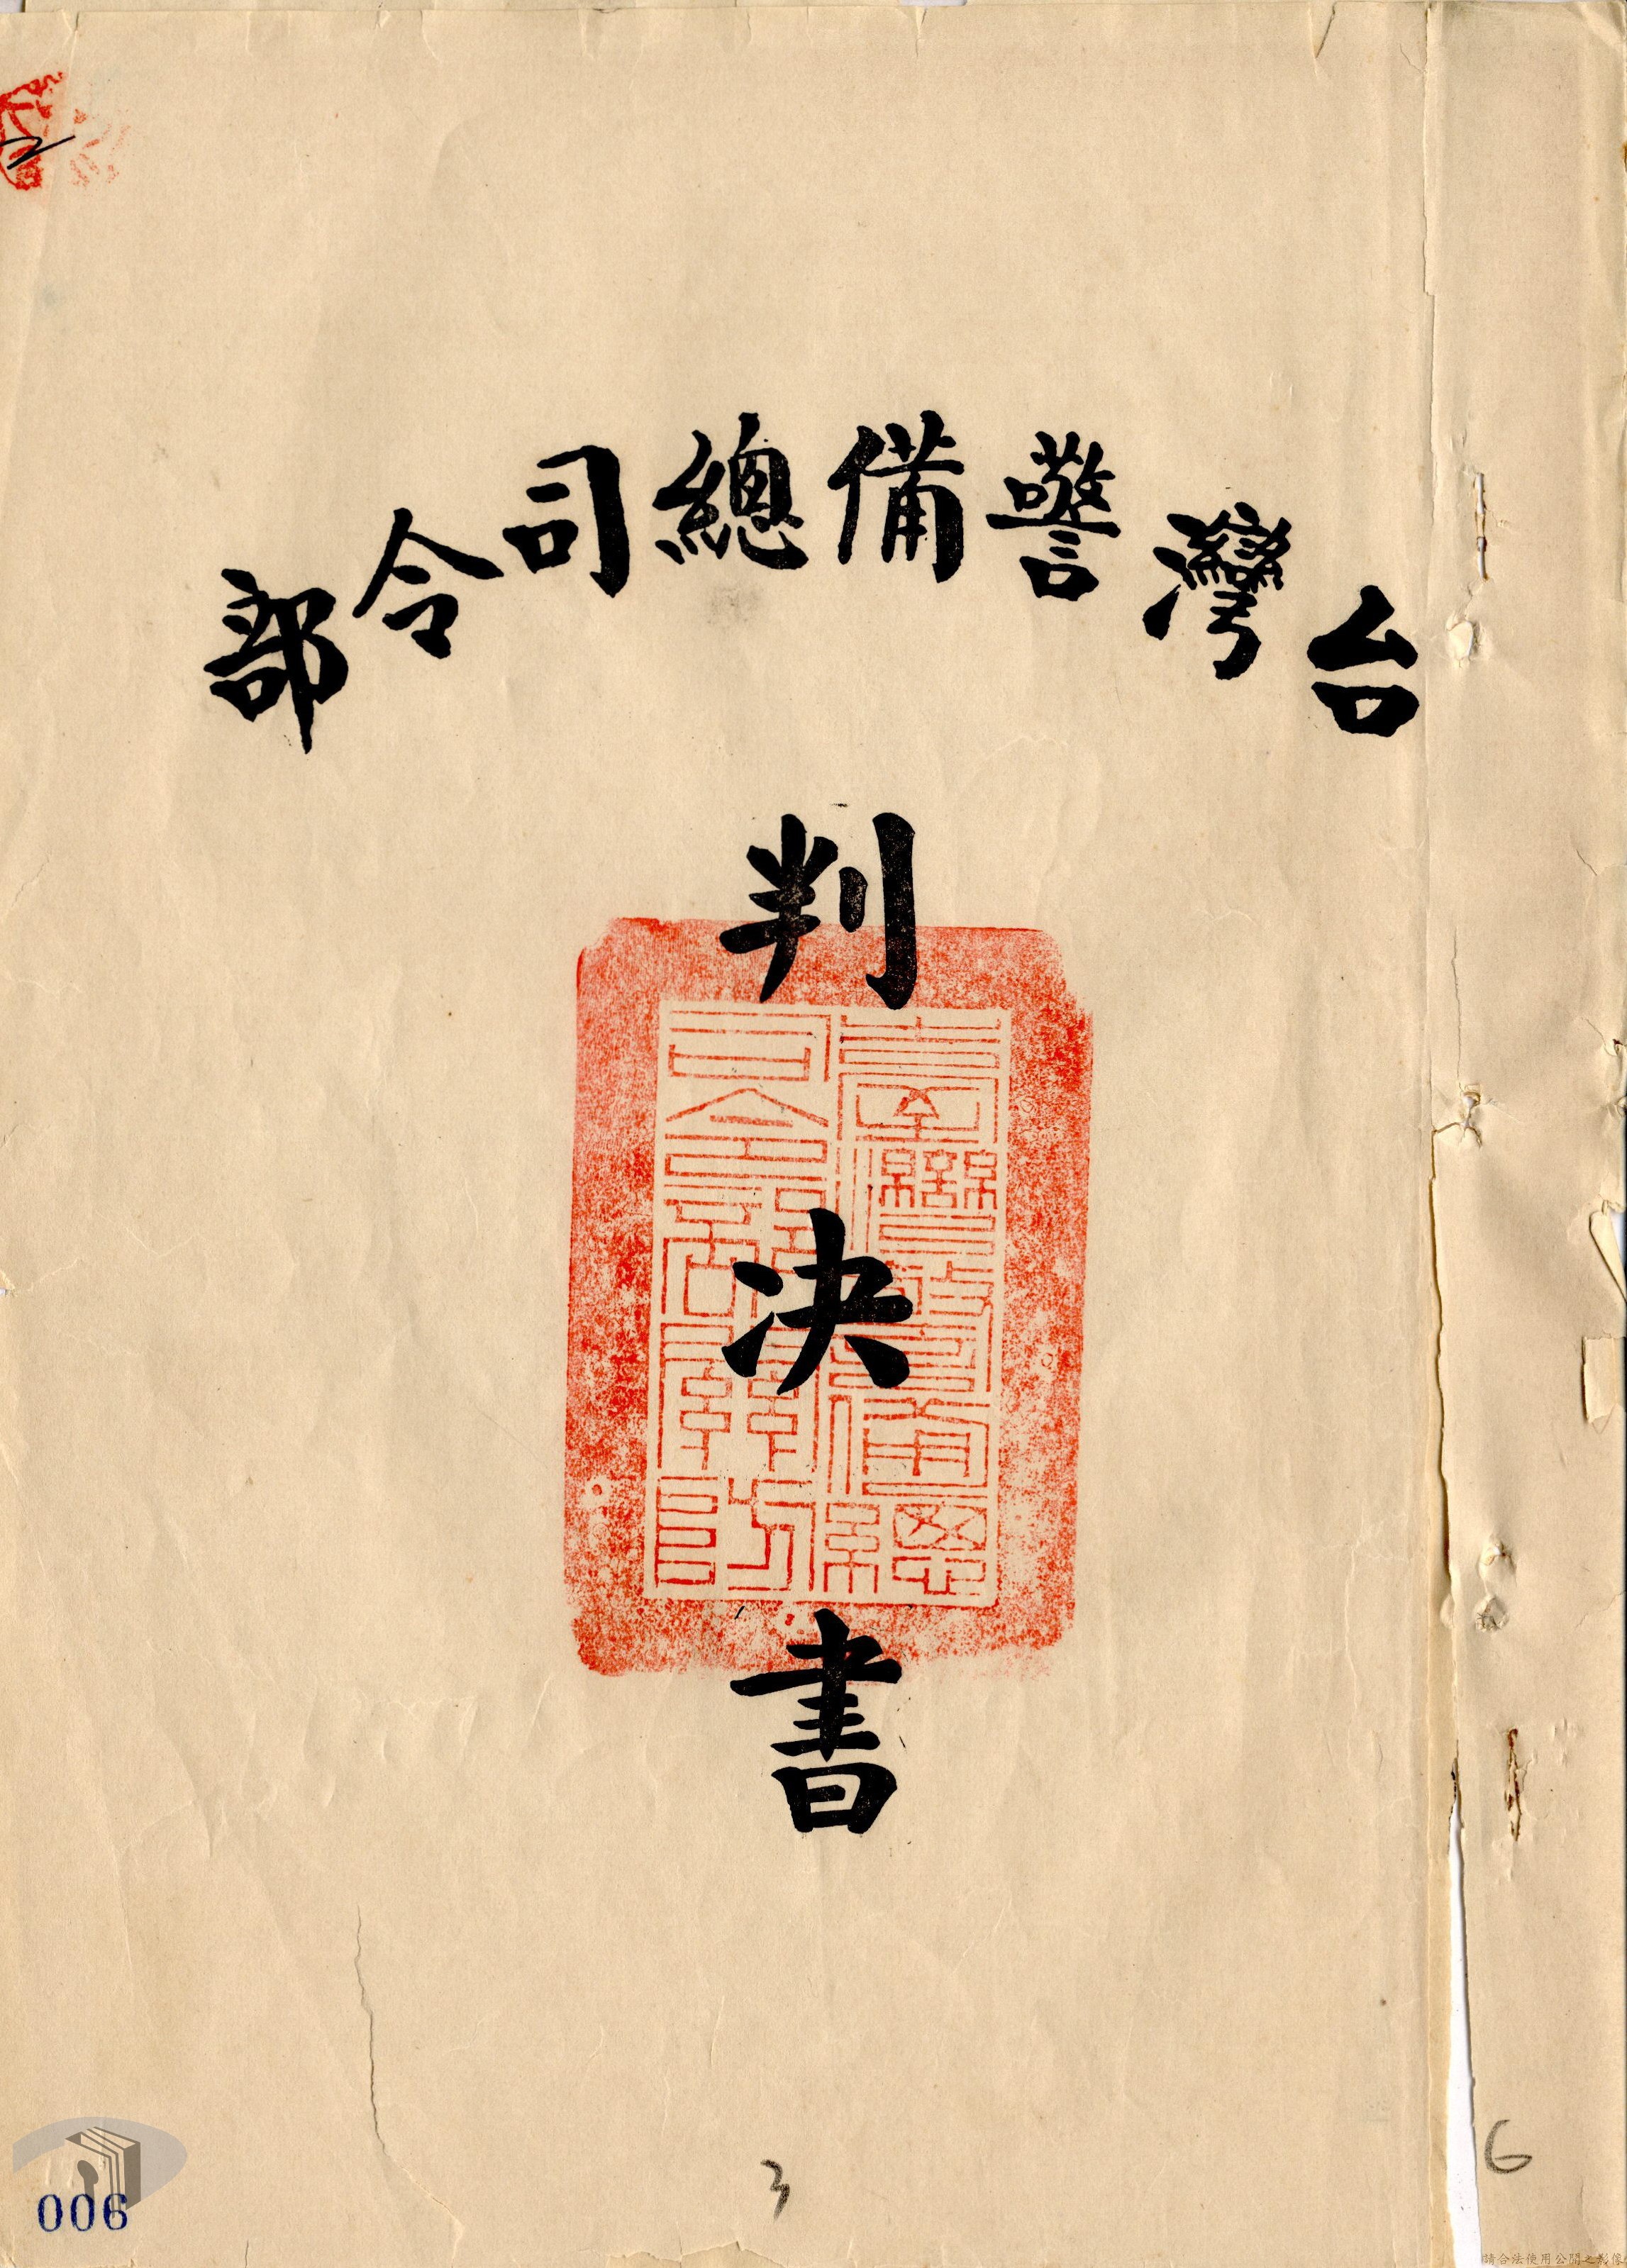 台灣警備總司令部
判決書
臺灣警備總
司令部軍法處
關防
006
3
6
請合法使用公開之影像